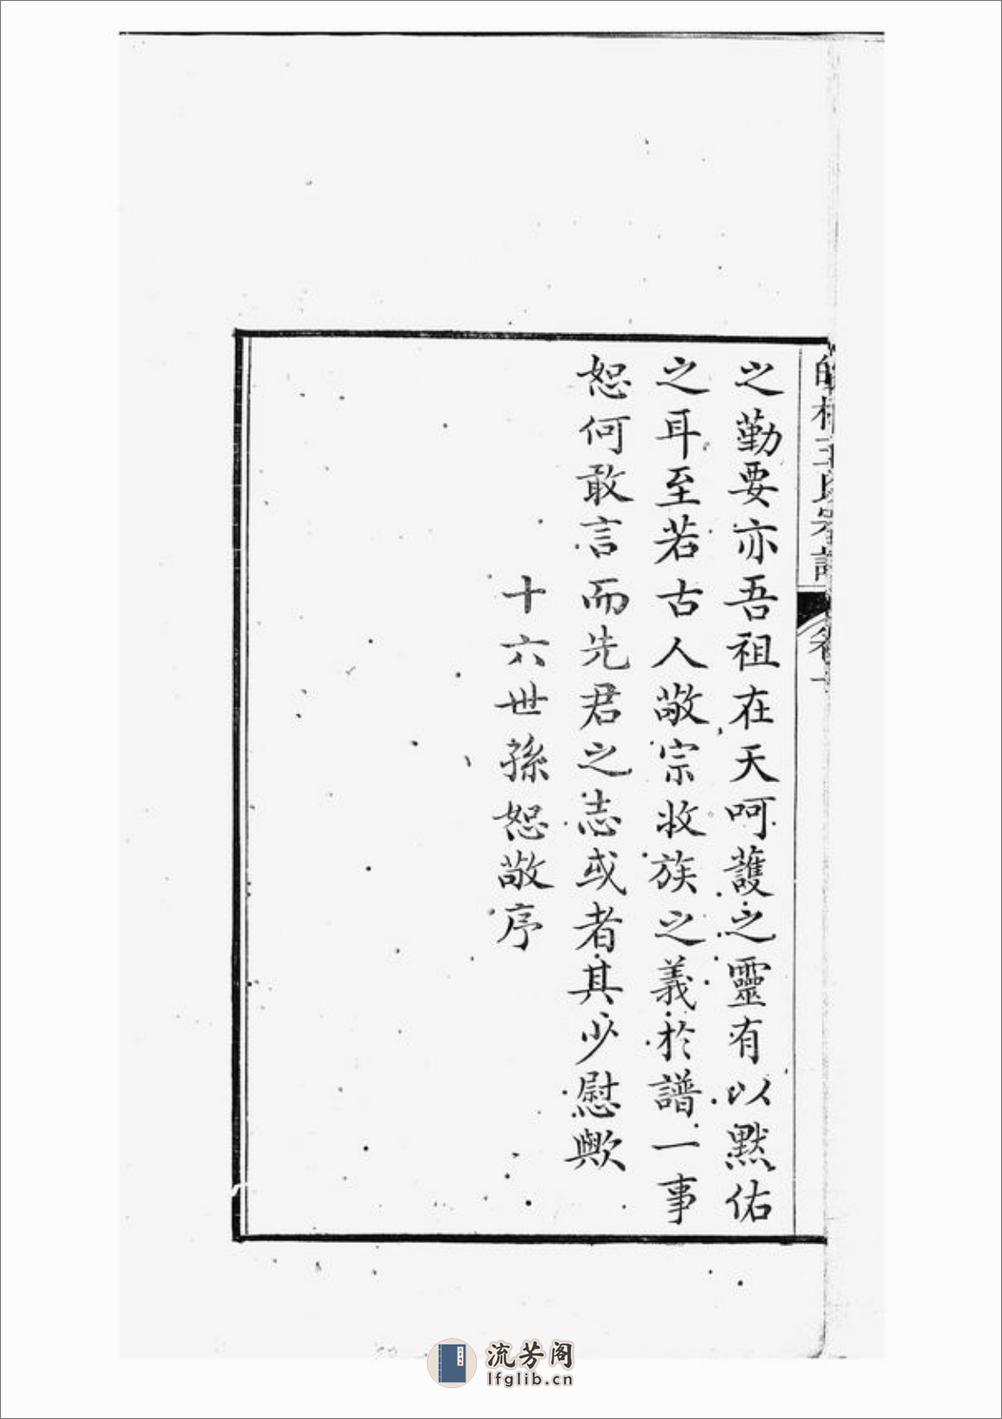 之勤要亦吾祖在天呵護之靈有以默佑
之耳至若古人敬宗收族之義於譜一事
恕何敢言而先君之志或者其少慰歟
十六世孫恕敬序
流芳阁
lfglib.cn